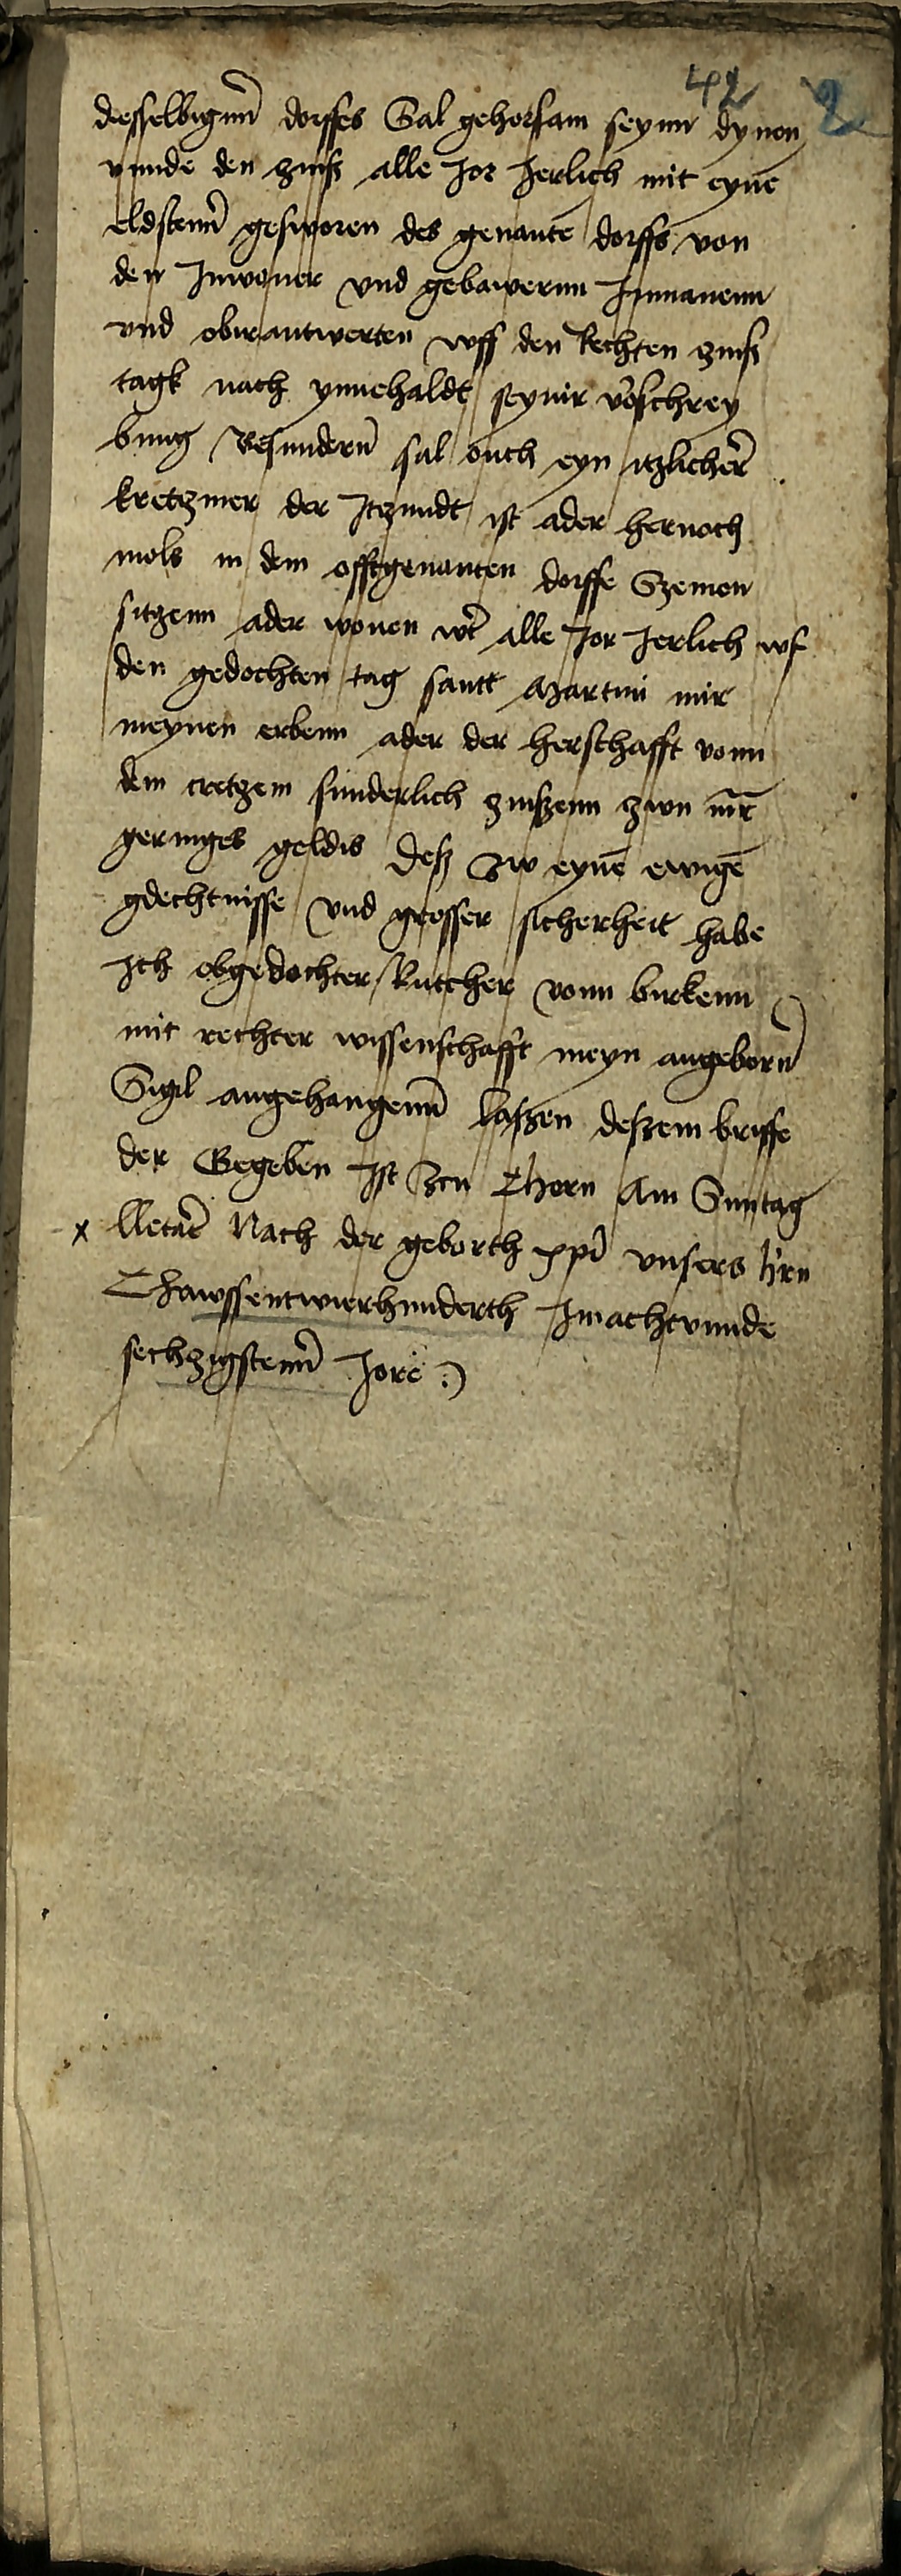 42 2
desselbignn̄ dorffes Sal gehorsam seynn dynen
vnnde den zinß alle Jor Jerlich mit eynē
eldstenn̄ gesworen des genantē dorffs von
den Inwoner vnd gebawernn Inmanenn
vnd obirantwerten vff den Rechten zinß
tagk nach ynnehaldt seynir v̄oschrey
bung Besundern̄ sal ouch eyn itzlicher̄
kretzmer der Itzundt ist ader hernoch
mols in dem offtgenanten dorffe Szemon
sitzenn ader wonen wt̄ alle Jor Jerlich vf
den gedochten tag santt Martini mir
meynen erbenn ader der herschafft vonn
dem cretzem sunderlich zinszenn zwu mr̄
geringes geldis Desz Zw eynē ewigē
gdechtnisse vnd grosser sicherheit habe
Ich obgedochter Rutcher vonn birkenn
mit rechter wissenschafft meyn angeborn̄
Sigil angehangenn̄ laszen deszem briffe
der Gegeben Ist Zcu Thorn Am Suntag
x lletar̄e Nach der geborth xpī vnsers h̄rn
Thawssentvierhunderth Imachtvnnde
sechzigstenn̄ Jore :)